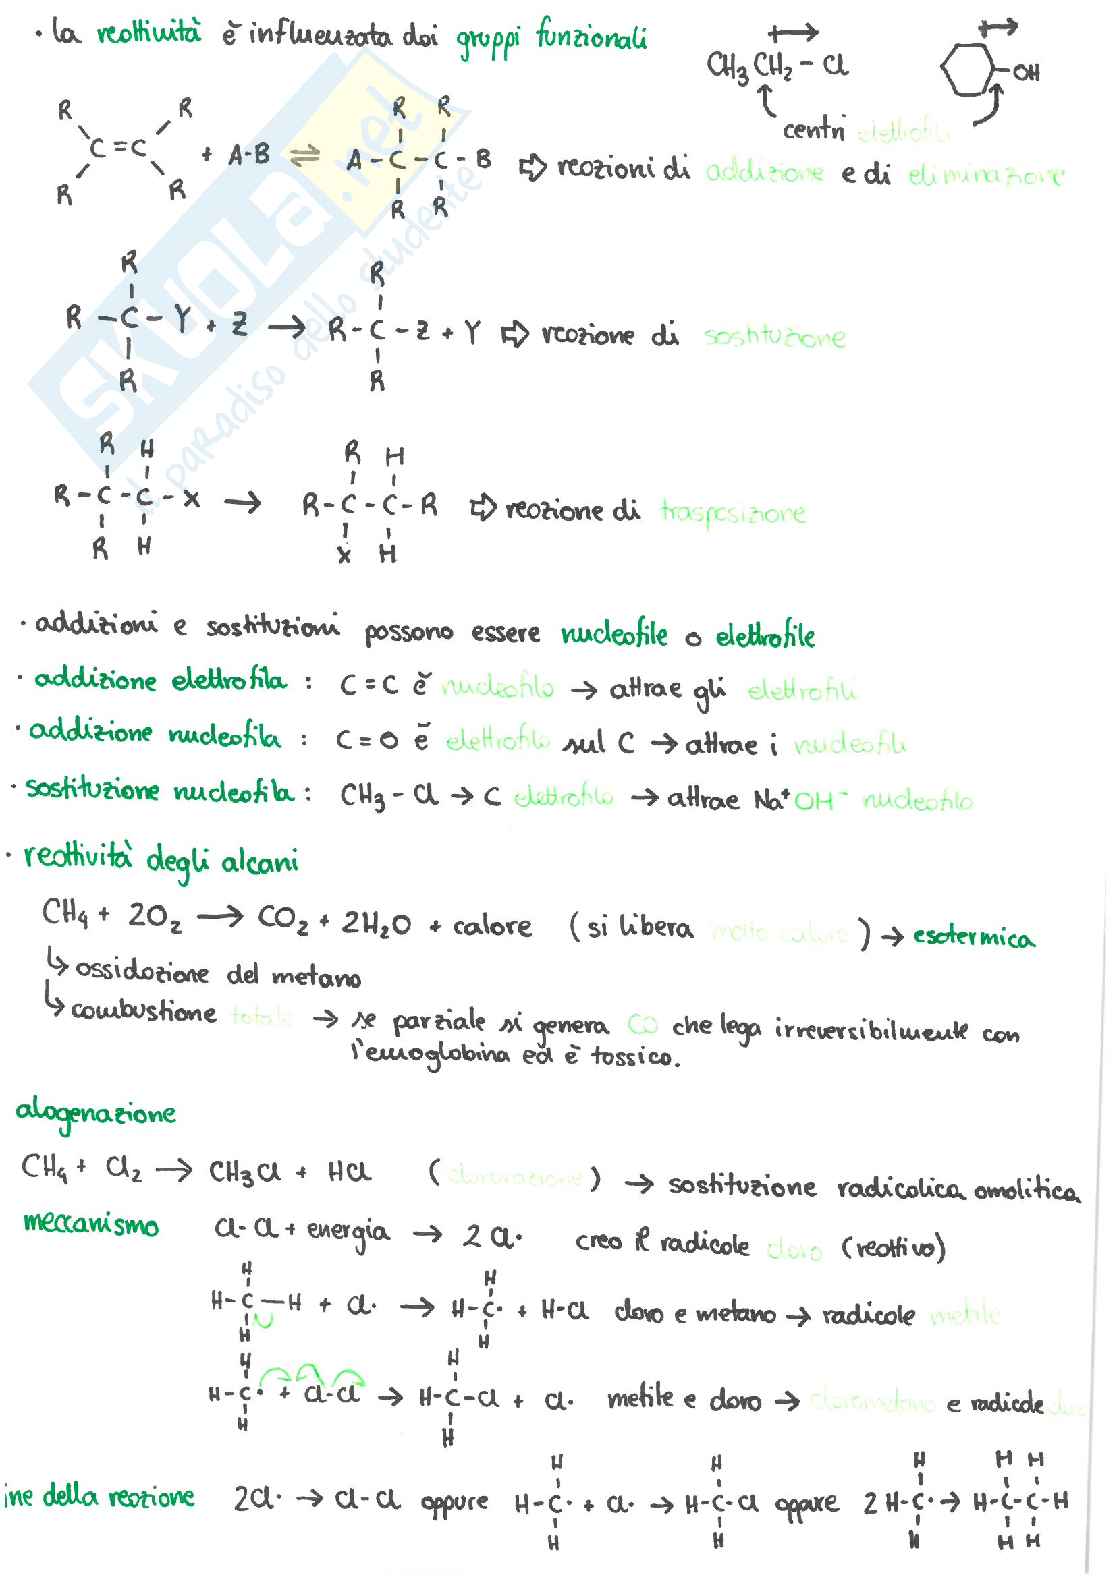 · la reattività è influenzata dai gruppi funzionali
CH3CH2-Cl
OH
centri elettrofili
R R R R
C=C + A-B ⇌ A-C-C-B ⇨ reazioni di addizione e di eliminazione
R R R R
R R
R-C-Y + Z → R-C-Z + Y ⇨ reazione di sostituzione
R R
R H R H
R-C-C-X → R-C-C-R ⇨ reazione di trasposizione
R H X H
· addizioni e sostituzioni possono essere nucleofile o elettrofile
· addizione elettrofila : C=C è nucleofilo → attrae gli elettrofili
· addizione nucleofila : C=O è elettrofilo sul C → attrae i nucleofili
· sostituzione nucleofila : CH3-Cl → C elettrofilo → attrae Na+OH- nucleofilo
· reattività degli alcani
CH4 + 2O2 → CO2 + 2H2O + calore (si libera molto calore) → esotermica
↳ ossidazione del metano
↳ combustione totale → se parziale si genera CO che lega irreversibilmente con
l'emoglobina ed è tossico.
alogenazione
CH4 + Cl2 → CH3Cl + HCl (clorurazione) → sostituzione radicalica omolitica
meccanismo Cl-Cl + energia → 2Cl· creo il radicale cloro (reattivo)
H H
H-C-H + Cl· → H-C· + H-Cl cloro e metano → radicale metile
H H
H H
H-C· + Cl-Cl → H-C-Cl + Cl· metile e cloro → clorometano e radicale cloro
H H
H H H H H
ine della reazione 2Cl· → Cl-Cl oppure H-C· + Cl· → H-C-Cl oppure 2 H-C· → H-C-C-H
H H H H H
SKUOLA.net
il paradiso dello studente